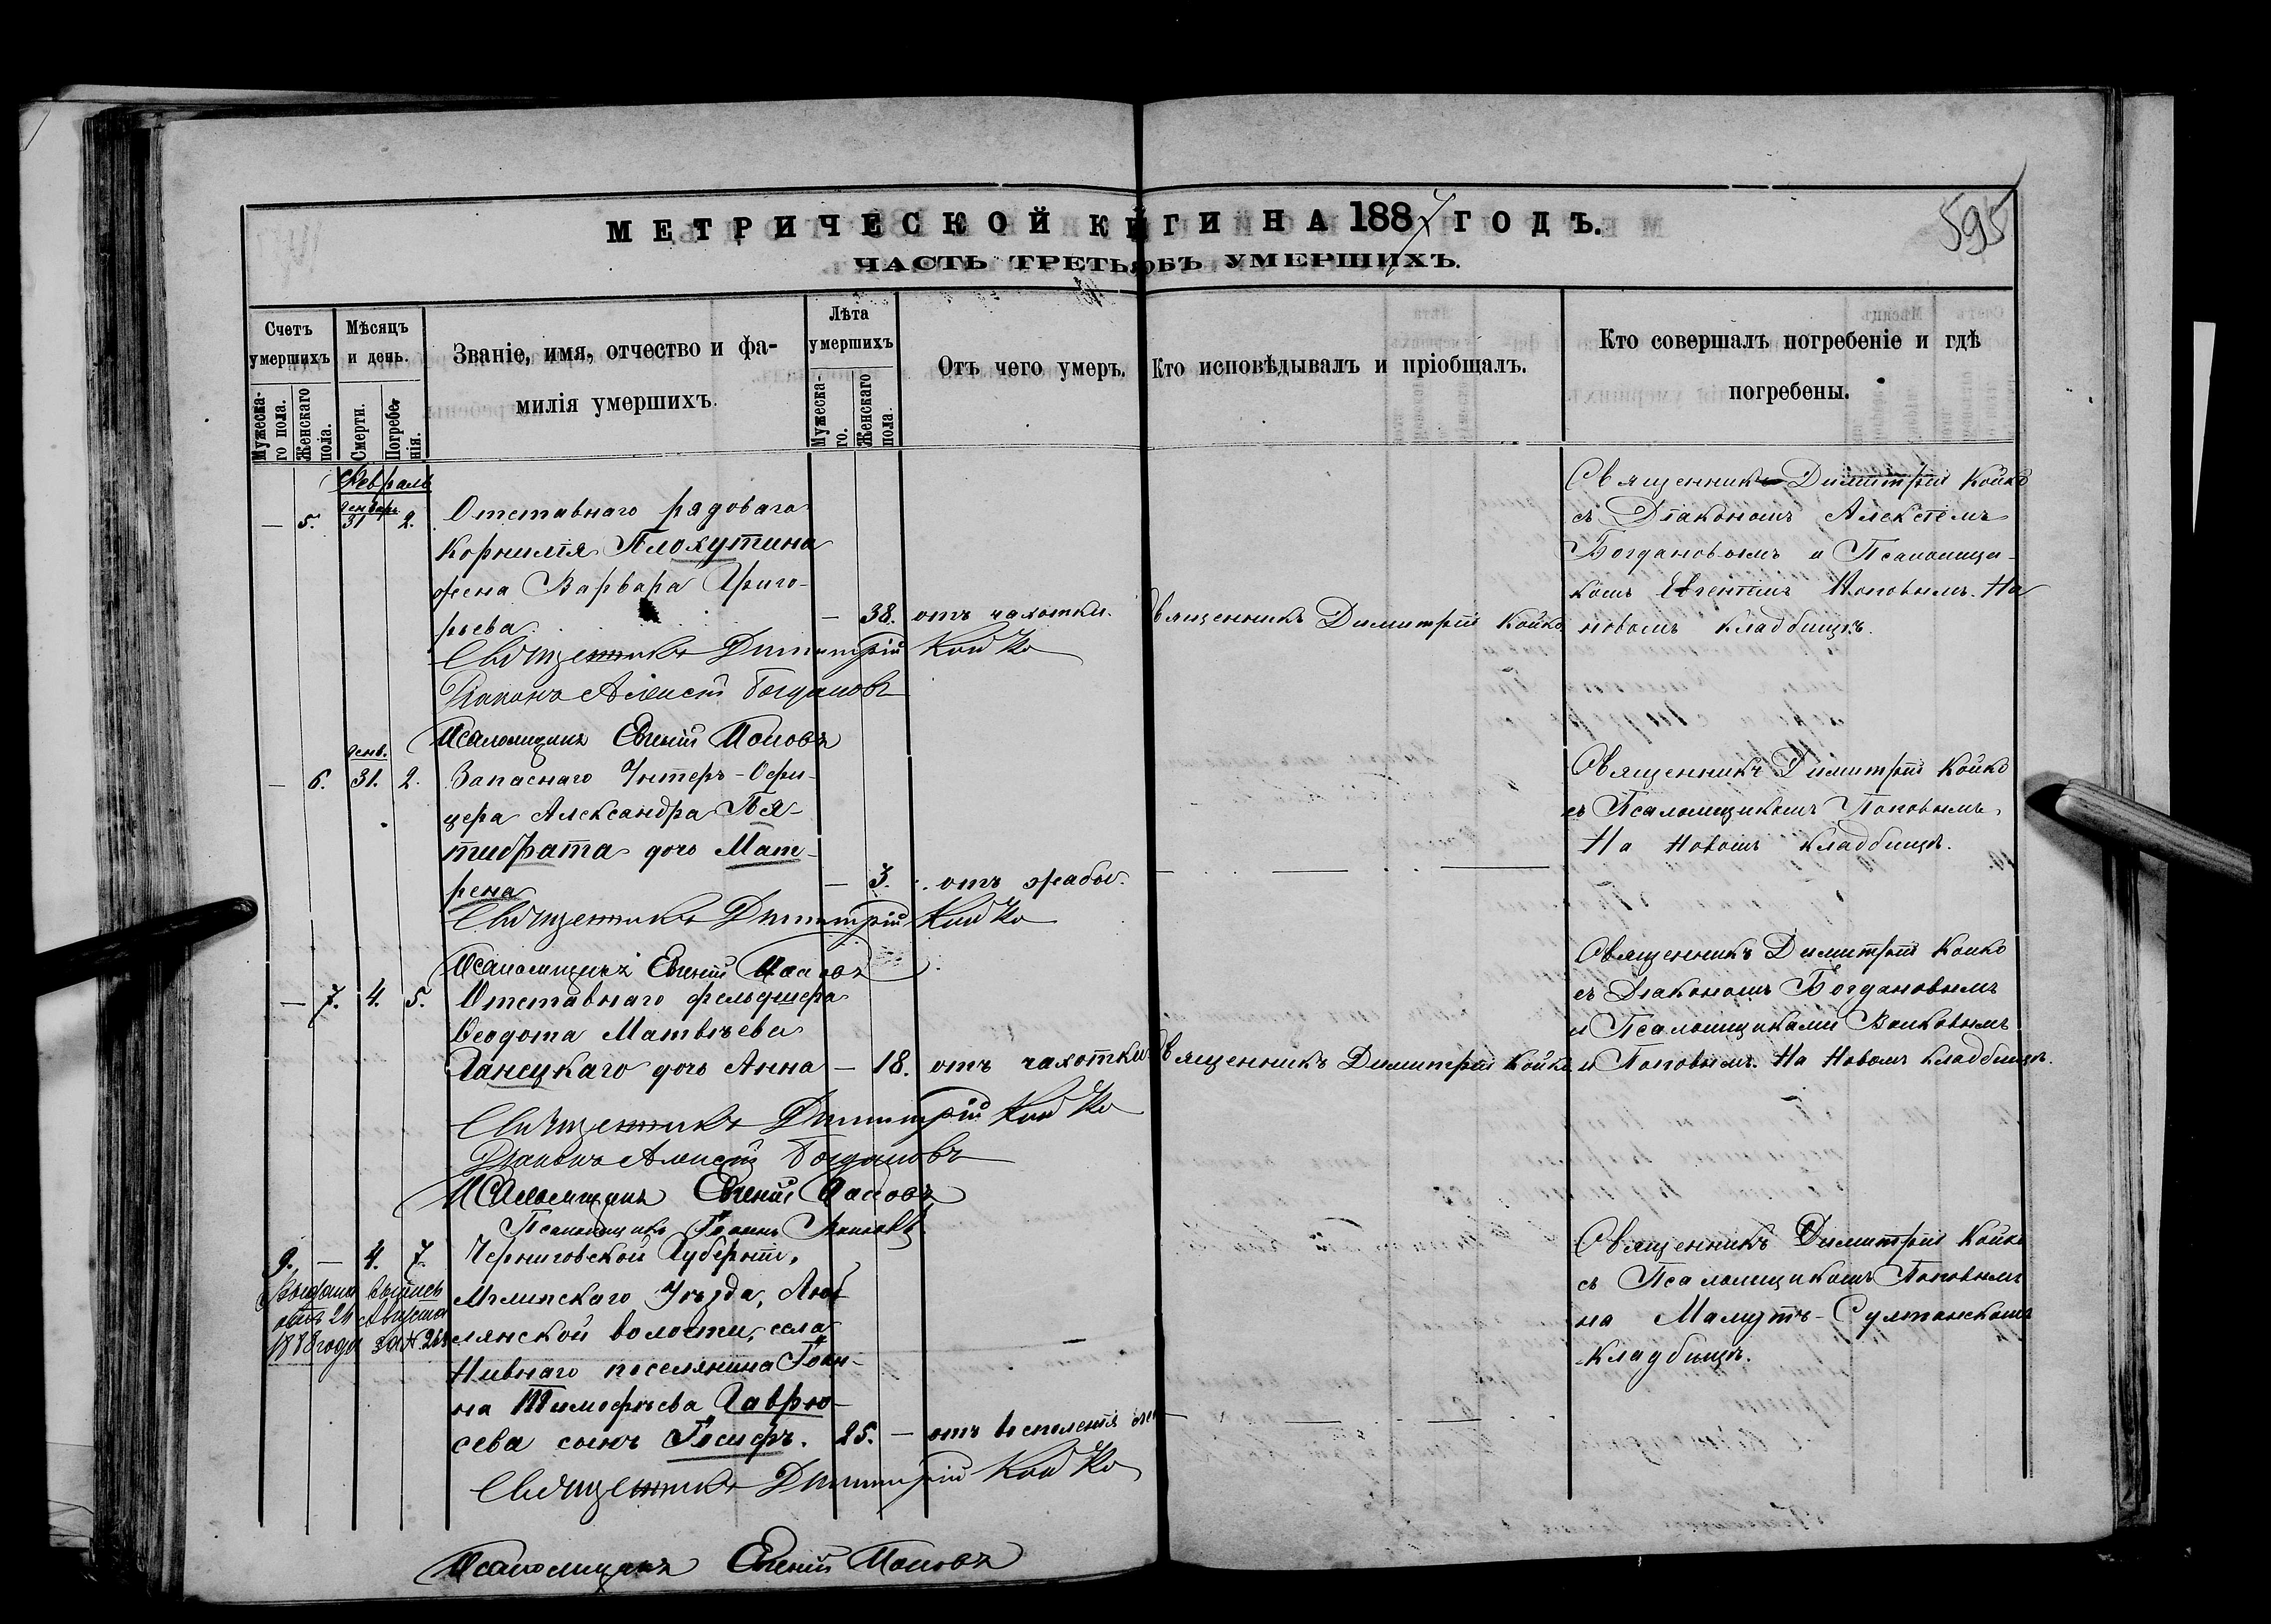 МЕТРИЧЕСКОЙ КНИГИ НА 1887 ГОДЪ.
595
ЧАСТЬ ТРЕТЬЯ ОБЪ УМЕРШИХЪ.
Счетъ умершихъ
Мужескаго пола.
Женскаго пола.
Мѣсяцъ и день.
Смерти.
Погребенія.
Званіе, имя, отчество и фамилія умершихъ.
Лѣта умершихъ
Мужескаго.
Женскаго пола.
Отъ чего умеръ.
Кто исповѣдывалъ и пріобщалъ.
Кто совершалъ погребеніе и гдѣ погребены.
Февраль
— 5. Январь 31 2.
Отставнаго рядоваго
Корнилія Плохутина
жена Варвара Григо-
рьева.
— 38. отъ чахотки.
Священникъ Димитрій Койко
Священникъ Димитрій Койко
съ Діакономъ Алексѣемъ
Богдановымъ и Псаломщи-
комъ Евгеніемъ Поповымъ. На
новомъ кладбищѣ.
Священникъ Димитрій Койко
Діаконъ Алексій Богдановъ
Псаломщикъ Евгеній Поповъ
— 6. Янв. 31. 2.
Запаснаго Унтеръ-Офи-
цера Александра Пя-
тибрата дочь Мат-
рена
— 3. отъ жабы.
Священникъ Димитрій Койко
съ Псаломщикомъ Поповымъ.
На Новомъ кладбищѣ.
Священникъ Димитрій Койко
Псаломщикъ Евгеній Поповъ
— 7. 4. 5.
Отставнаго фельдшера
Ѳеодота Матвѣева
Ганецкаго дочь Анна
— 18. отъ чахотки.
Священникъ Димитрій Койко
Священникъ Димитрій Койко
съ Діакономъ Богдановымъ
и Псаломщиками
и Поповымъ. На Новомъ кладбищѣ.
Священникъ Димитрій Койко
Діаконъ Алексій Богдановъ
Псаломщикъ Евгеній Поповъ
Псаломщикъ Іоаннъ
9. — 4. 7.
Выдана выпись
24 Августа
1888 года за №
Черниговской Губерніи,
Мглинскаго Уѣзда,
лянской волости, села
Нивнаго поселянина Іоан-
на Тимофѣева Гаврю-
сева сынъ Іосифъ.
25. — отъ воспаленія
Священникъ Димитрій Койко
съ Псаломщикомъ Поповымъ
на Мамутъ-Султанскомъ
кладбищѣ.
Священникъ Димитрій Койко
Псаломщикъ Евгеній Поповъ